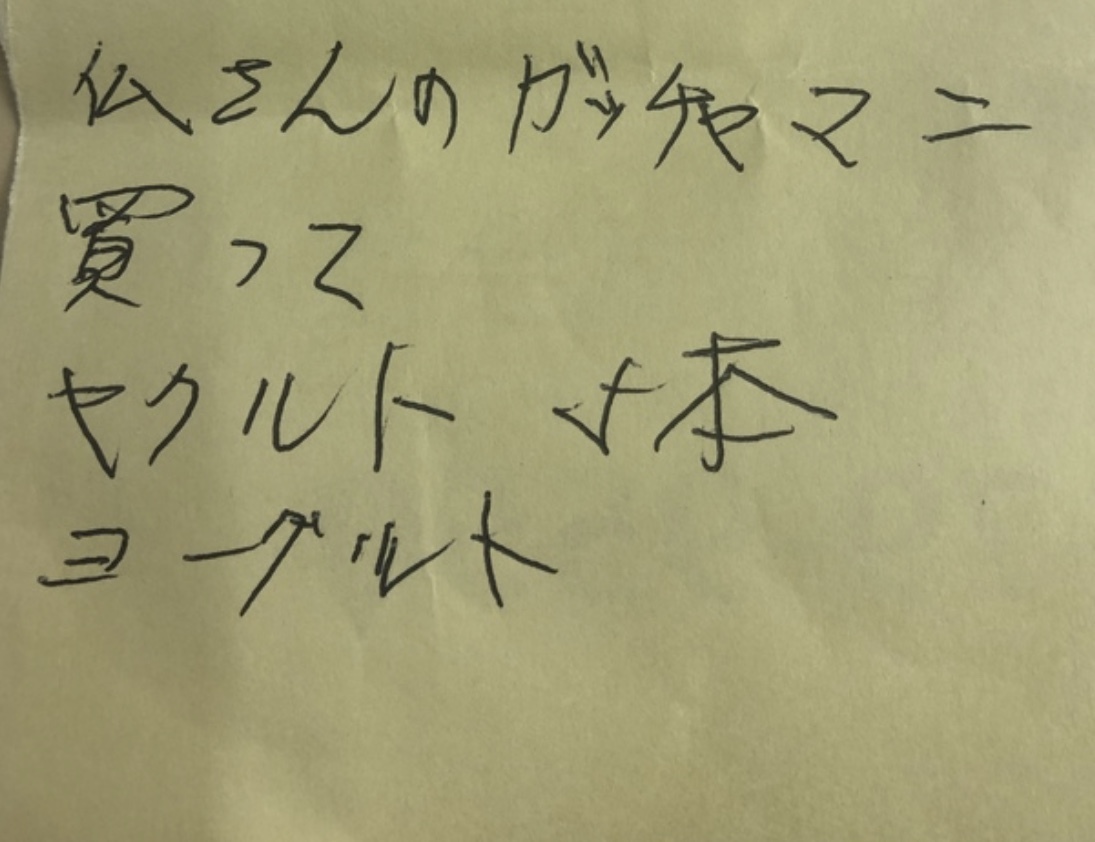 仏さんのガッチャマニ
買って
ヤクルト 十本
ヨーグルト